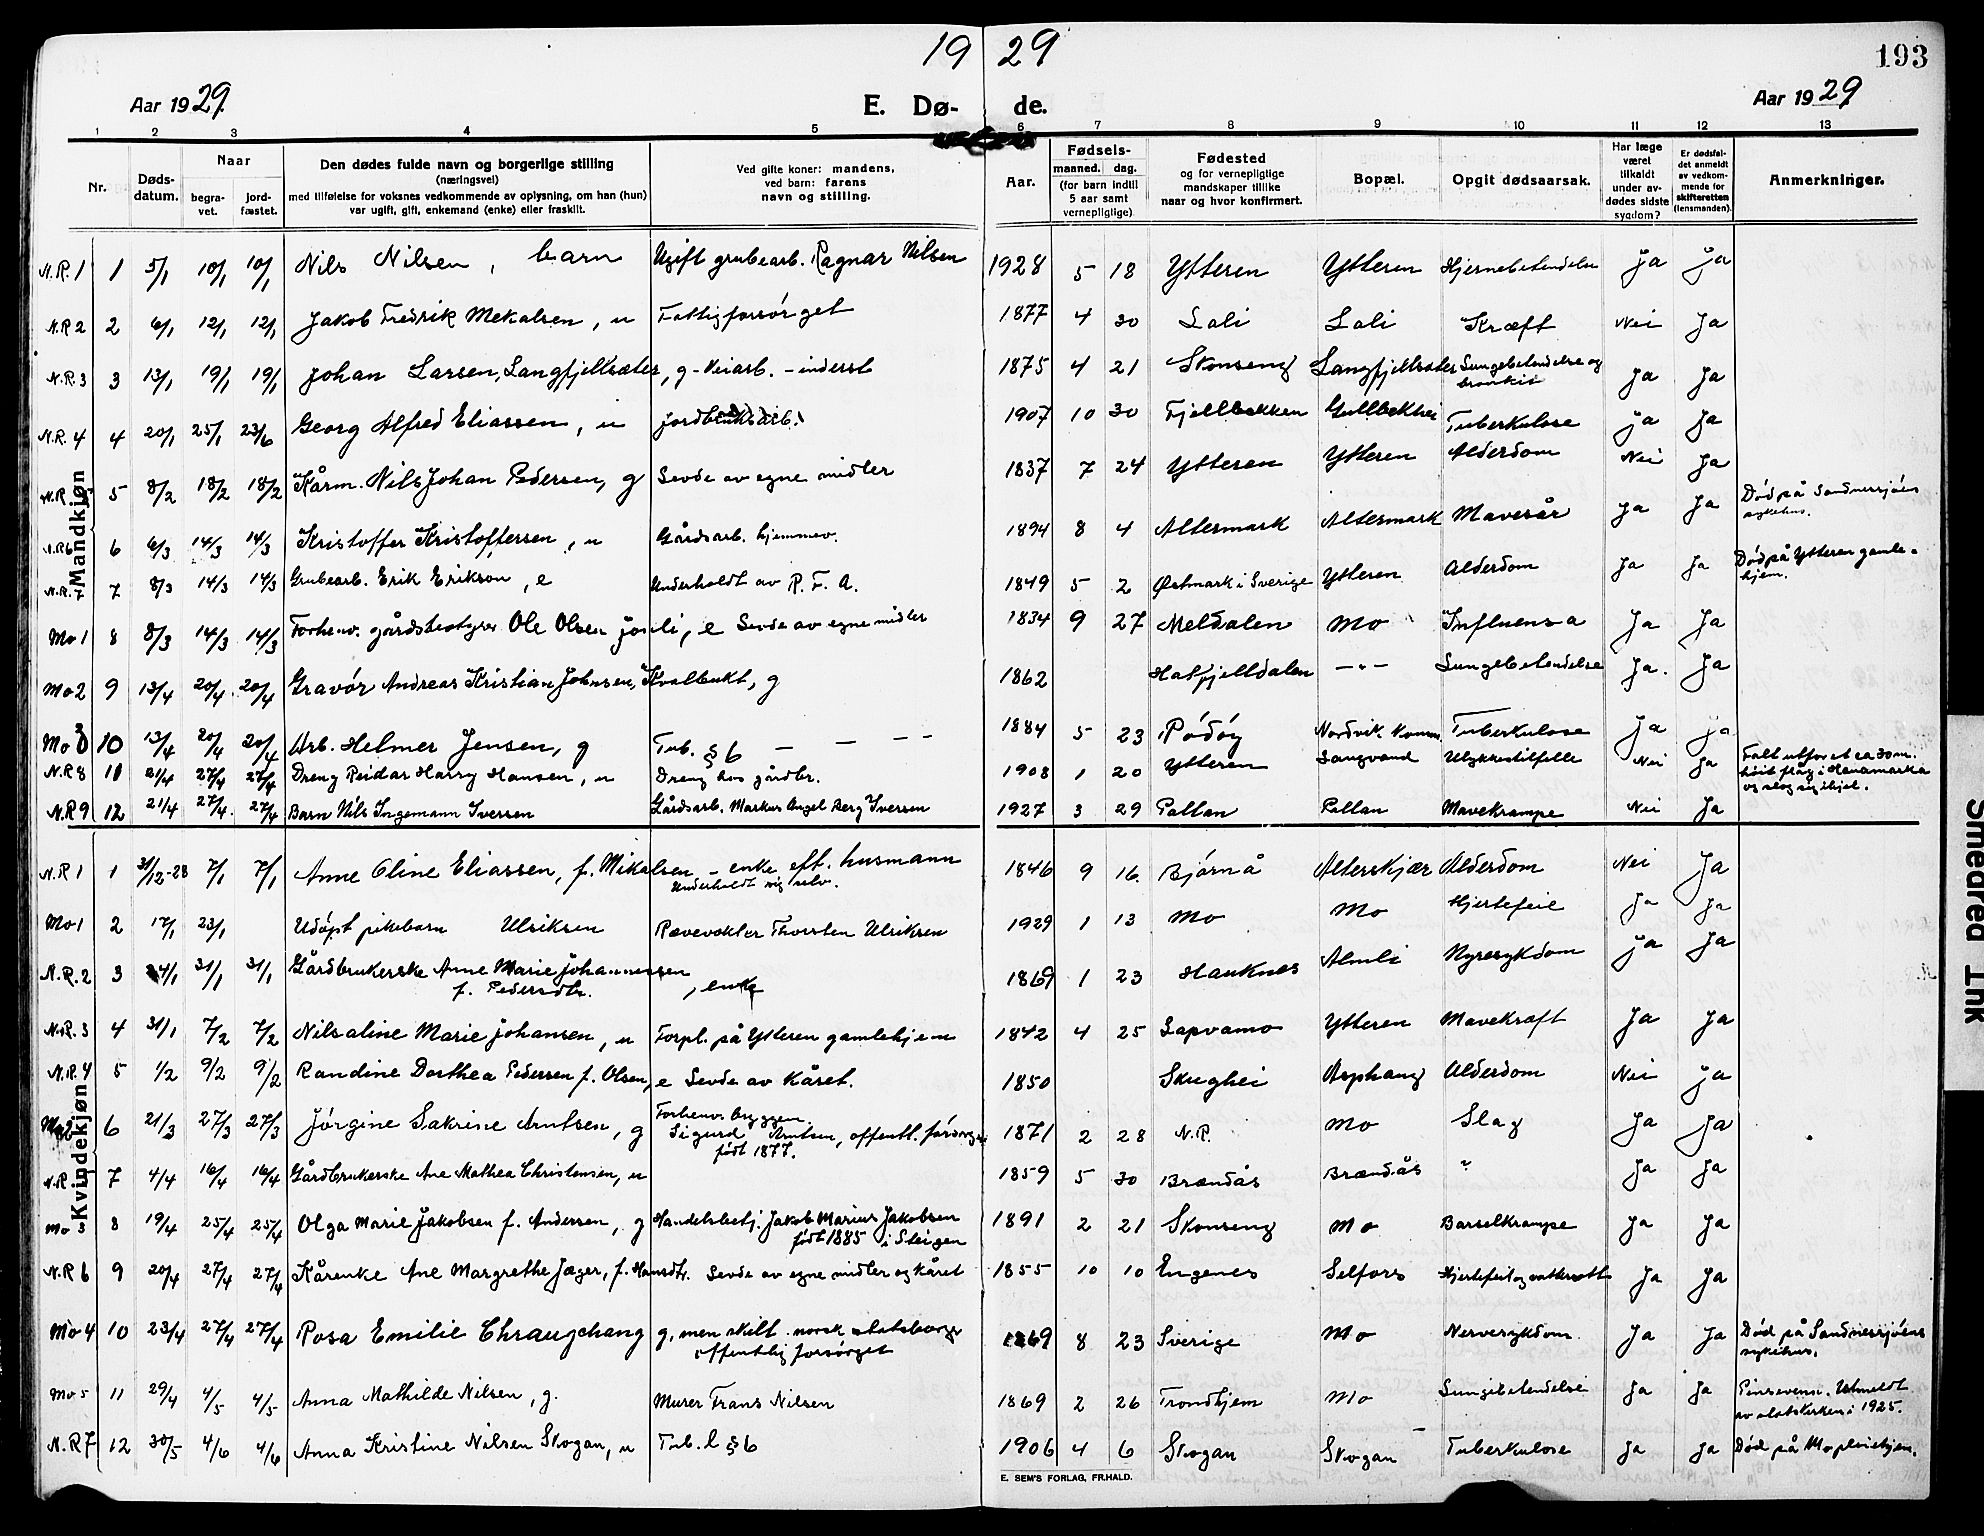 19 29
193
Aar 1929.
E. Dø- de.
Aar 1929
1 2 3 4 5 6 7 8 9 10 11 12 13
Nr.
Døds-datum.
Naar
begra-vet.
jord-fæstet.
Den dødes fulde navn og borgerlige stilling
(næringsvei)
med tilføielse for voksnes vedkommende av oplysning, om han (hun)
var ugift, gift, enkemand (enke) eller fraskilt.
Ved gifte koner: mandens,
ved barn: farens
navn og stilling.
Aar.
Fødsels-
maaned. dag.
(for barn indtil
5 aar samt
vernepligtige)
Fødested
og for vernepligtige
mandskaper tillike
naar og hvor konfirmert.
Bopæl.
Opgit dødsaarsak.
Har læge
været
tilkaldt
under av-
dødes sidste
sygdom?
Er dødsfal-
det anmeldt
av vedkom-
mende for
skifteretten
(lensmanden).
Anmerkninger.
Mandkjøn
N.R.1 1 5/1 10/1 10/1 Nils Nilsen, barn Ugift grubearb. Ragnar Nilsen 1928 5 18 Ytteren Ytteren Hjernebetendelse Ja Ja
N.R 2 2 6/1 12/1 12/1 Jakob Fredrik Mekalsen, u Fattigforsörget 1877 4 30 Lali Lali Kræft Nei Ja
N.R.3 3 13/1 19/1 19/1 Johan Larsen, Langfjellsæter, g - Veiarb. - inderst 1875 4 21 Skonseng Langfjellsæter Lungebetendelse og
bronkit Ja Ja
N.R. 4 4 20/1 25/1 23/6 Georg Alfred Eliassen, u jordbruksarb. 1907 10 30 Fjellbakken Gullbekhei Tuberkulose Ja Ja
N.R. 5 5 8/2 18/2 18/2 Kårm. Nils Johan Pedersen, g Levde av egne midler 1837 7 24 Ytteren Ytteren Alderdom Nei Ja
N.R6 6 6/3 14/3 14/3 Kristoffer Kristoffersen, u Gårdsarb. hjemmev. 1894 8 4 Altermark Altermark Mavesår Ja Ja Död på Sandnessjöen
sykehus.
N.R.7 7 8/3 14/3 14/3 Grubearb. Erik Erikson, e Underholdt av R. F. A. 1849 5 2 Östmark i Sverige Ytteren Alderdom Ja Ja Död på Ytteren gamle-
hjem.
Mo 1 8 8/3 14/3 14/3 Forhenv. gårdsbestyrer Ole Olsen Josli, e Levde av egne midler 1834 9 27 Meldalen Mo Influensa Ja Ja
Mo 2 9 13/4 20/4 20/4 Gravör Andreas Kristian Johnsen, Kvalbukt, g 1862 Hatfjelldalen — " — Lungebetendelse Ja. Ja
Mo 3 10 13/4 20/4 20/4 Arb. Helmer Jensen, g Tub. § 6 — — — 1884 5 23 Rödöy Nordvik Komm. Tuberkulose Ja Ja
N.R 8 11 21/4 27/4 27/4 Dreng Reidar Harry Hansen, u Dreng hos gårdbr. 1908 1 20 Ytteren Langvand Ulykkestilfelle Nei Ja Falt utfor et ca 30 m.
höit flåg i Hanamarka
og slog sig ihjel.
N.R 9 12 21/4 27/4. 27/4 Barn Nils Ingemann Iversen Gårdsarb. Markus Angel Berg Iversen 1927 3 29 Pallan Pallan Mavekrampe Nei Ja
Kvindekjøn
N.R 1 1 31/12-28 7/1 7/1 Anne Oline Eliassen, f. Mikalsen - enke eft. husmann
Underholdt sig selv. 1846 9 16. Bjørnå Alterskjær Alderdom Nei Ja
Mo 1 2 17/1 23/1 Udöpt pikebarn Ulriksen Rævevokter Thorsten Ulriksen 1929 1 13 Mo Mo Hjertefeil Ja Ja
N.R.2 3 24/1 31/1 31/1 Gårdbrukerske Anne Marie Johannessen
f. Pedersdtr. , enke 1869 1 23 Hauknes Almli Nyresykdom Ja Ja
N.R.3 4 31/1 7/2 7/2 Nilsaline Marie Johansen, u Forpl. på Ytteren gamlehjem 1842 4 25 Lapvamo Ytteren Mavekræft Ja Ja
N.R.4 5 1/2 9/2 9/2 Randine Dorthea Pedersen f. Olsen, e Levde av Kåret. 1850 Skughei Asphaug Alderdom Nei Ja
Mo 2 6 21/3 27/3 27/3 Jörgine Sakrine Arntsen, g Forhenv. byggm.
Sigurd Arntsen, offentl. forsörget
född 1877. 1871 2 28 N.R. Mo Slag Ja Ja
N.R. 5 7 4/4 16/4 16/4 Gårdbrukerske Ane Mathea Christensen, u 1859 5 30 Brændås Brændås " Ja Ja
Mo 3 8 19/4 25/4 25/4 Olga Marie Jakobsen f. Andersen, g Handelsbetj. Jakob Marius Jakobsen
född 1885 i Steigen 1891 2 21 Skonseng Mo Barselkrampe Ja Ja
N.R 6 9 20/4 27/4 27/4 Kårenke Ane Margrethe Jæger, f. Hansdtr. Levde av egne midler og kåret 1855 10 10 Engenes Selfors Hjertefeil og vattersott Ja Ja
Mo 4 10 23/4 27/4 27/4 Rosa Emilie Chraugchang g, men skilt. norsk statsborger
offentlig forsörget 1869 8 23 Sverige Mo Nervesykdom Ja Ja Död på Sandnessjöens
sykehus.
Mo 5 11 29/4 4/5 4/5 Anna Mathilde Nilsen, g. Murer Frans Nilsen 1869 2 26 Trondhjem Mo Lungebetendelse Ja Ja Pinsevenn. Utmeldt
av statskirken i 1925.
N.R 7 12 30/5 4/6 4/6 Anna Kristine Nilsen Skogan, u Tub. l § 6 1906 4 6 Skogan Skogan Tuberkulose Ja Ja Död på Mo pleiehjem.
E. SEM'S FORLAG, FR.HALD.
Smedred Trhk